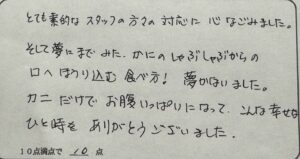 とても素的なスタッフの方々の対応に心なごみました。
そして夢にまでみた、かにのしゃぶしゃぶからの
口へほうり込む食べ方！夢がかないました。
カニだけでお腹いっぱいになって、こんな幸せな
ひと時をありがとうございました。
10点満点で 10 点